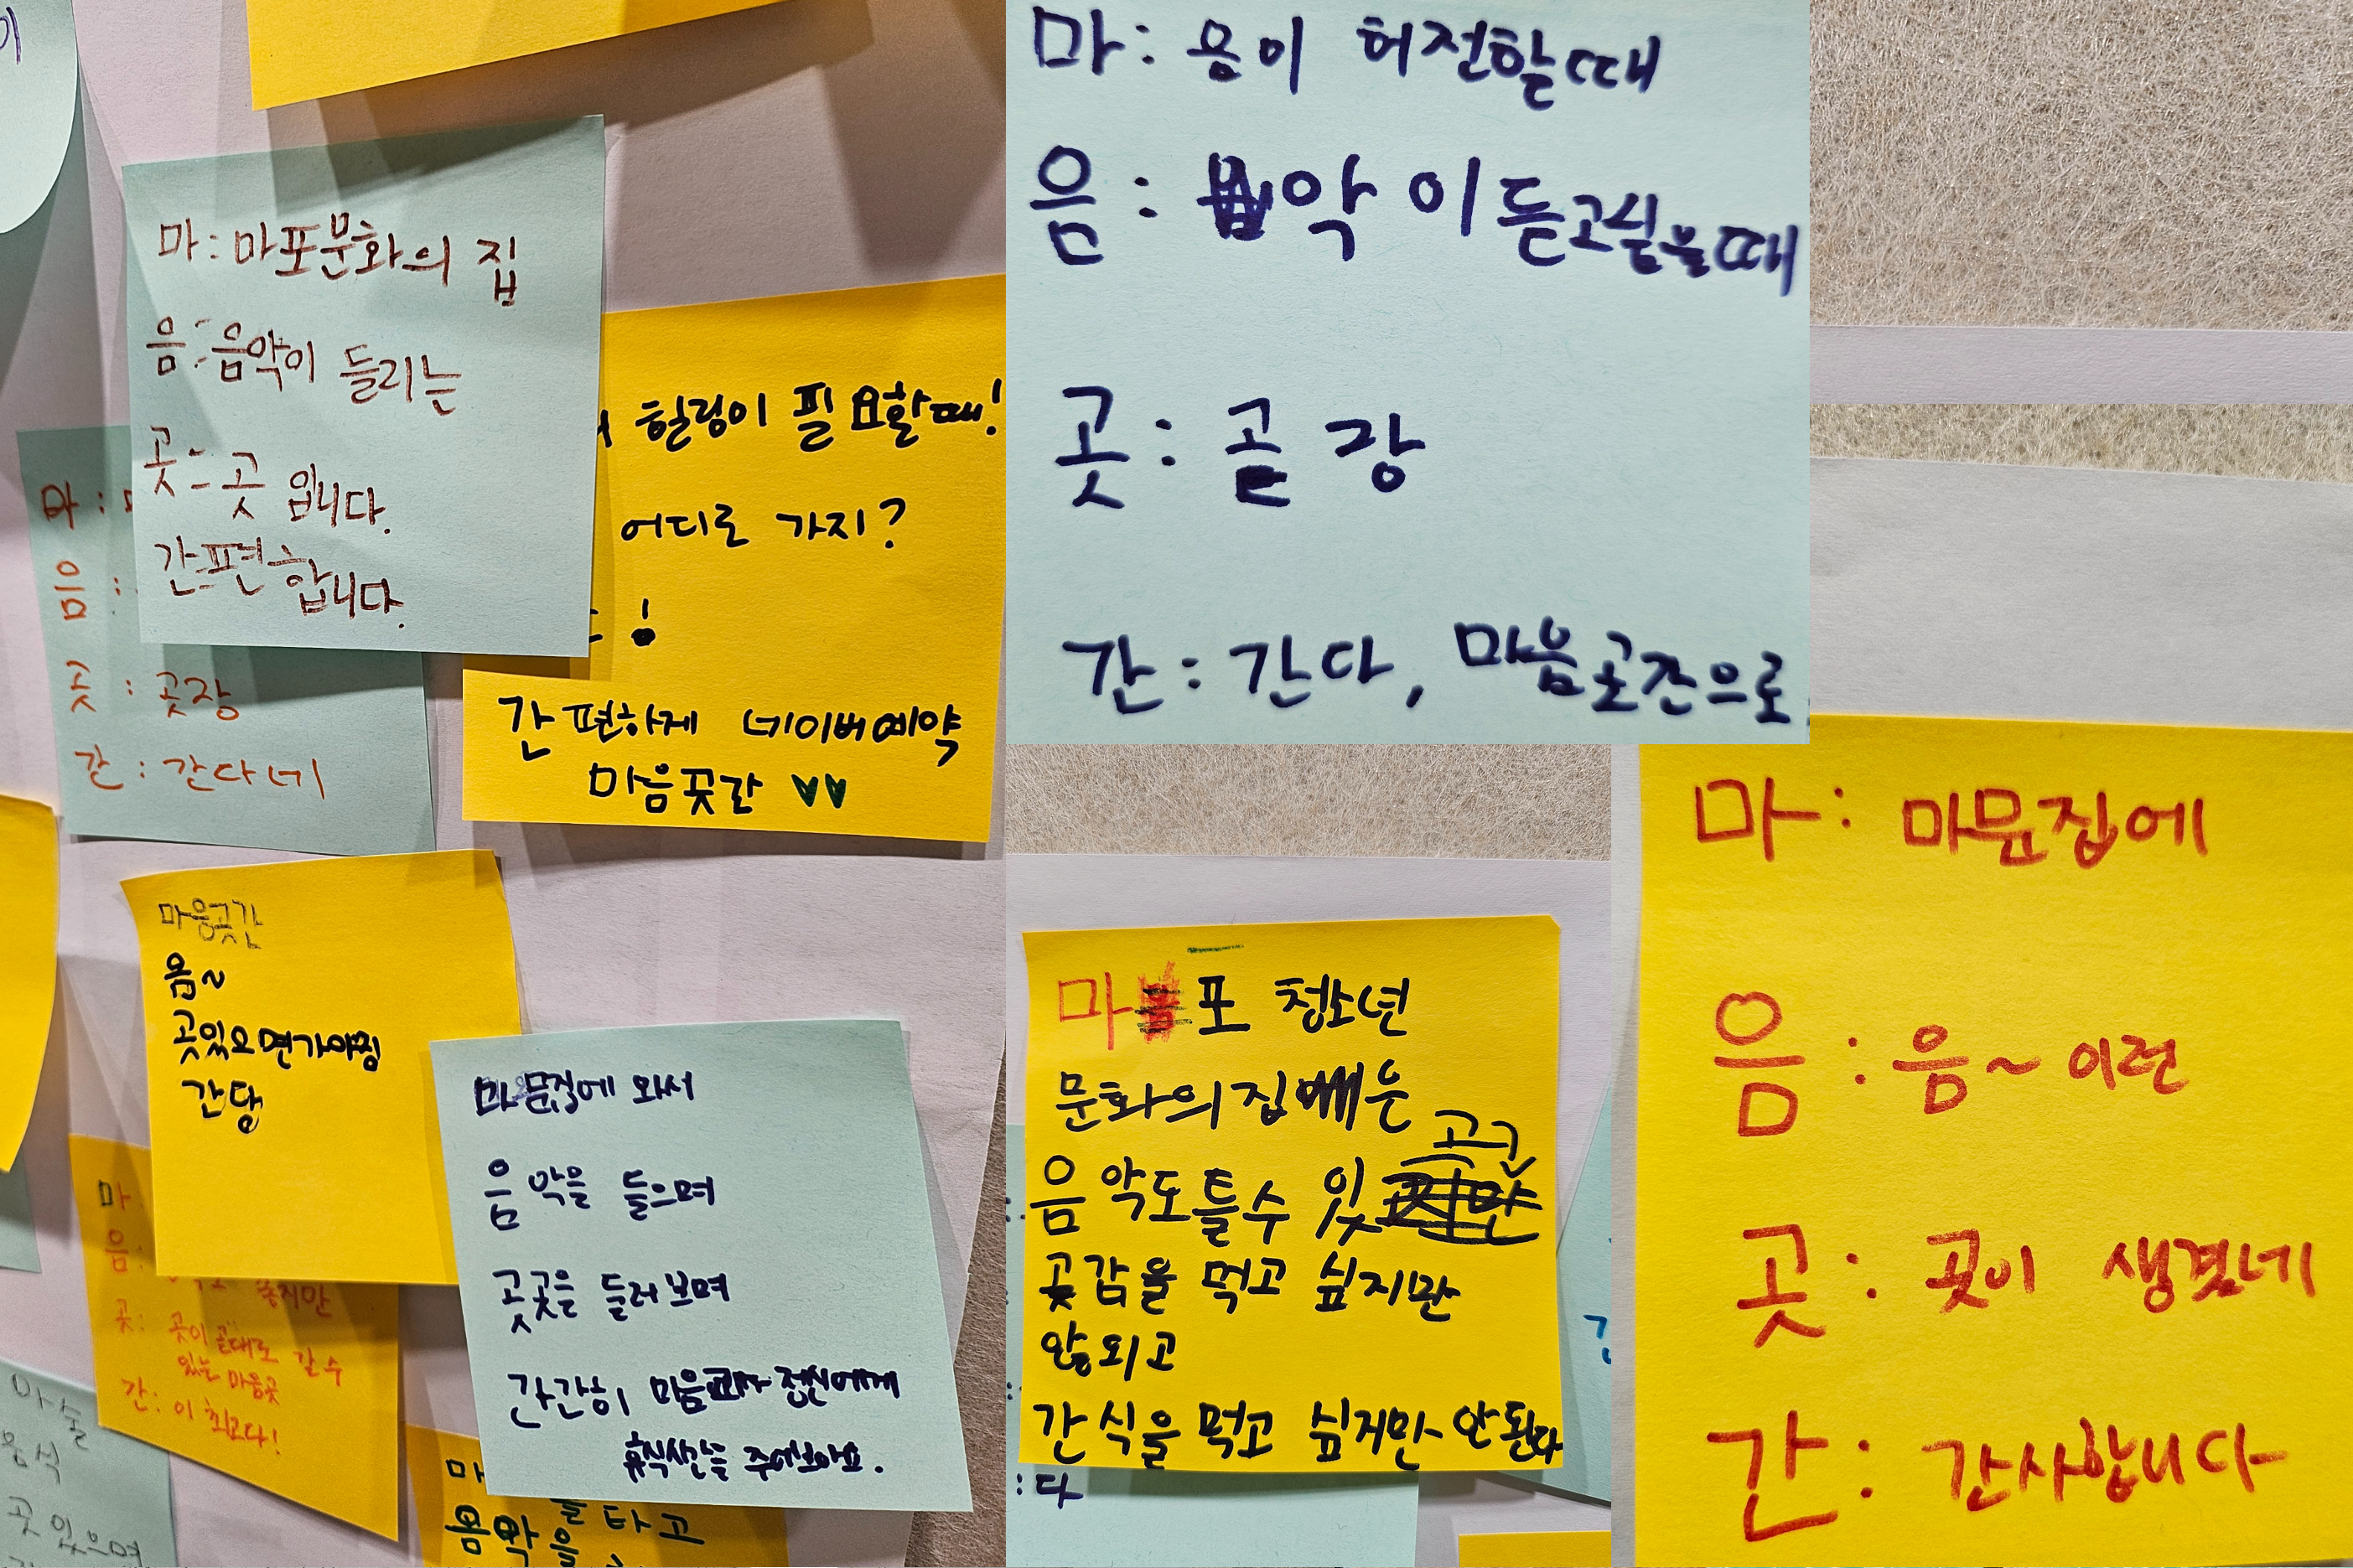 마: 마포문화의 집
음: 음악이 들리는
곳: 곳 입니다.
간편합니다.
힐링이 필요할때!
어디로 가지?
!
간편하게 네이버예약
마음곳간
마:
음:
곳: 곳장
간: 간다네
마음곳간
음~
곳있으면가야징
간당
마문집에 와서
음악을 들으며
곳곳을 들러보며
간간히 마음과 정신에게
휴식시간을 주어보아요.
마:
음:
좋지만
곳: 곳이 곧대로 갈수
있는 마음곳
간: 이 최고다!
마술
음식
곳 있으며
마
를 타고
음악을
마: 음이 허전할때
음: 악이 듣고싶을때
곳: 곧장
간: 간다, 마음곳간으로
마포 청소년
문화의집에는
음악도틀수 있고
곶감을 먹고 싶지만
않되고
간식을 먹고 싶지만 안된다
:다
마: 마문집에
음: 음~ 이런
곳: 곳이 생겼네
간: 간사합니다